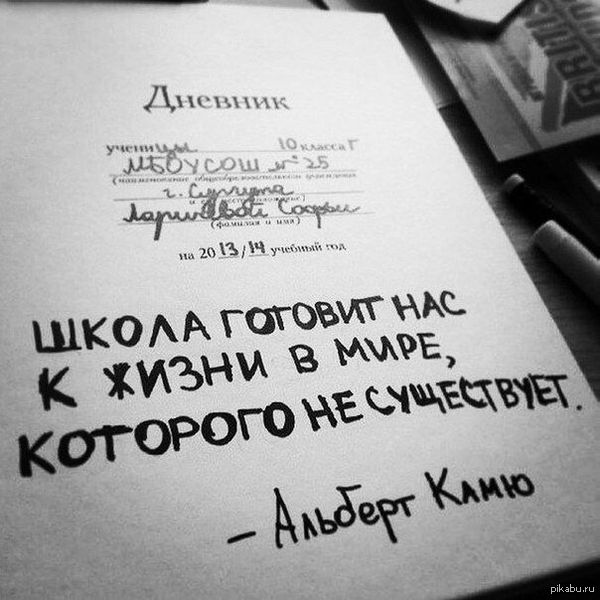 Дневник
ученицы 10 класса Г
МБОУСОШ № 25
(наименование общеобразовательного учреждения
г.
Софьи
(фамилия и имя)
на 20 13 / 14 учебный год
ШКОЛА ГОТОВИТ НАС
К ЖИЗНИ В МИРЕ,
КОТОРОГО НЕ СУЩЕСТВУЕТ.
- Альберт Камю
BRITISH
pikabu.ru